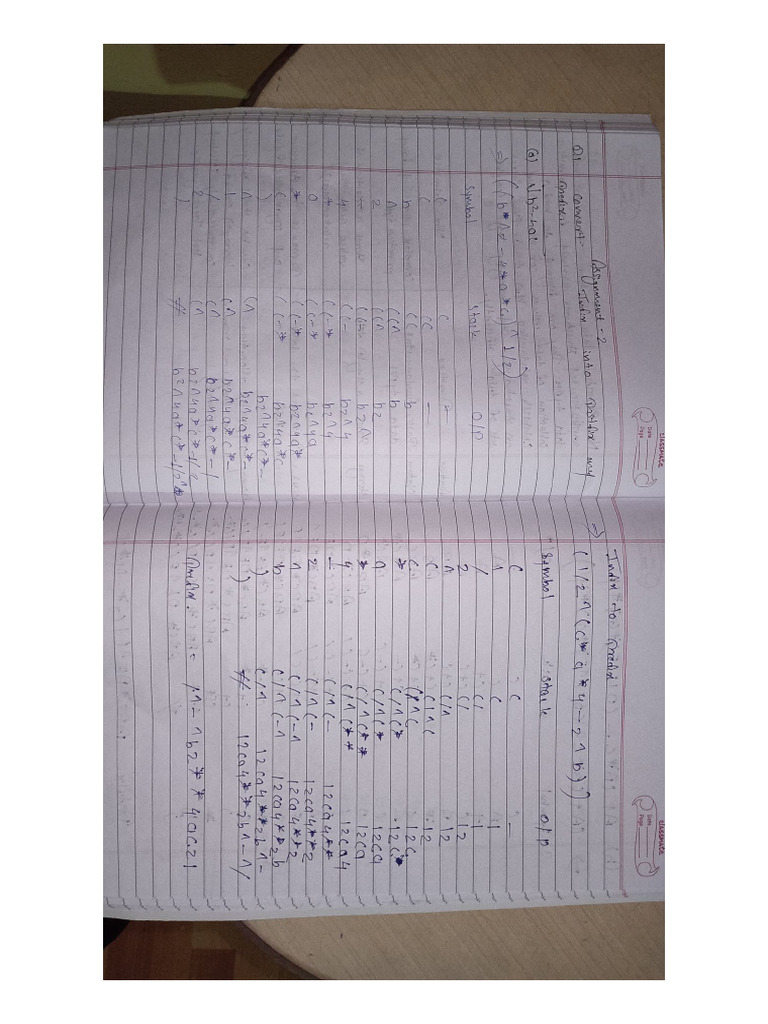 classmate
Date
Page
Assignment - 2
Q1 Convert Infix into Postfix and
Prefix
(a) √b²-4ac
⇒ ((b*^2-4*a*c)^1/2)
Symbol Stack O/P
( ( —
( (( —
b (( b
^ ((^ b
2 ((^ b2
b2^
4 ((- b2^4
* ((-* b2^4
a ((-* b2^4a
* ((-* b2^4a*
c ((-* b2^4a*c
) b2^4a*c*-
^ (^ b2^4a*c*-
1 (^ b2^4a*c*-
/ (^ b2^4a*c*-1
2 (^ b2^4a*c*-1/2
) # b2^4a*c*-1/2^*
classmate
Date
Page
⇒ Infix to Prefix
(1/2^(c*a*4-2^b))
Symbol Stack O/P
( ( —
1 ( 1
/ (/ 1
2 (/ 12
^ (/^ 12
( (/^( 12
c (/^( 12c
* (/^(* 12c
a (/^(* 12ca
* (/^(** 12ca
4 (/^(** 12ca4
- (/^(- 12ca4**
2 (/^(- 12ca4**2
^ (/^(-^ 12ca4**2
b (/^(-^ 12ca4**2b
) (/^ 12ca4**2b^-
) # 12ca4**2b^-^/
Prefix = /^-^b2**4ac21